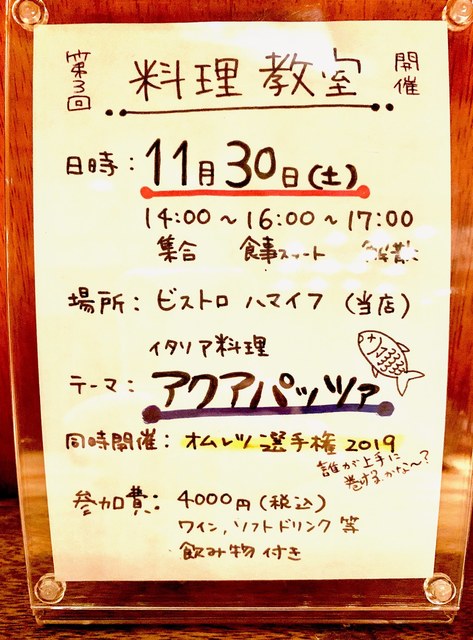 第3回 料理教室 開催
日時: 11月30日(土)
14:00〜16:00〜17:00
集合 食事スタート 解散
場所: ビストロ ハマイフ (当店)
イタリア料理
テーマ: アクアパッツァ
同時開催: オムレツ選手権 2019
誰が上手に
巻けるかな〜?
参加費: 4000円(税込)
ワイン、ソフトドリンク 等
飲み物付き